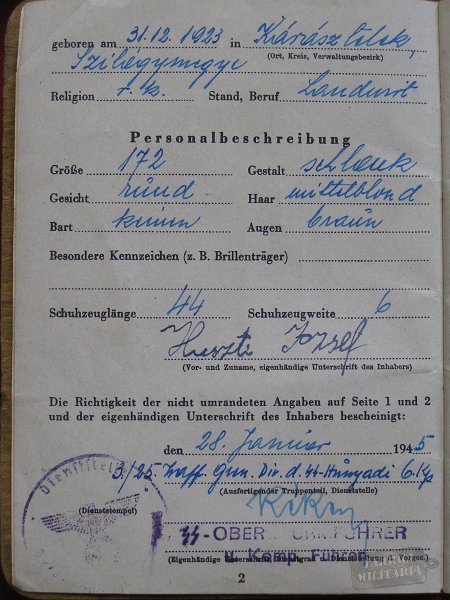 geboren am 31.12.1923 in Kárásztelek,
(Ort, Kreis, Verwaltungsbezirk)
Szilágymegye
Religion r. k. Stand, Beruf Landwirt
Personalbeschreibung
Größe 172 Gestalt schlank
Gesicht rund Haar mittelblond
Bart keinen Augen braun
Besondere Kennzeichen (z. B. Brillenträger)
Schuhzeuglänge 44 Schuhzeugweite 6
Huszti József
(Vor- und Zuname, eigenhändige Unterschrift des Inhabers)
Die Richtigkeit der nicht umrandeten Angaben auf Seite 1 und 2
und der eigenhändigen Unterschrift des Inhabers bescheinigt:
den 28. Januar 1945
3./25 Waff. Gren. Div. d. SS Hunyadi 6. Kp
(Ausfertigender Truppenteil, Dienststelle)
(Dienststempel)
SS-OBERSTURMFÜHRER
u. Komp. Führer
(Eigenhändige Unterschrift, Dienstgrad u. Dienststellung d. Vorges.)
2
MILITARIA